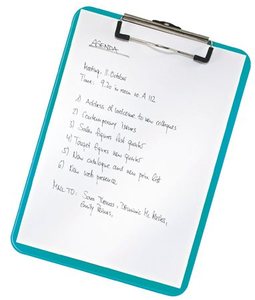 AGENDA
Meeting: 8 October
Time: 9.30 in room no. A 112
1) Address of welcome to new collegues
2) Contemporary issues
3) Sales figures last quarter
4) Target figures new quarter
5) New catalogue and new price list
6) New web presence
MAIL TO: Sara Thomas, Dominic Mc
Emily